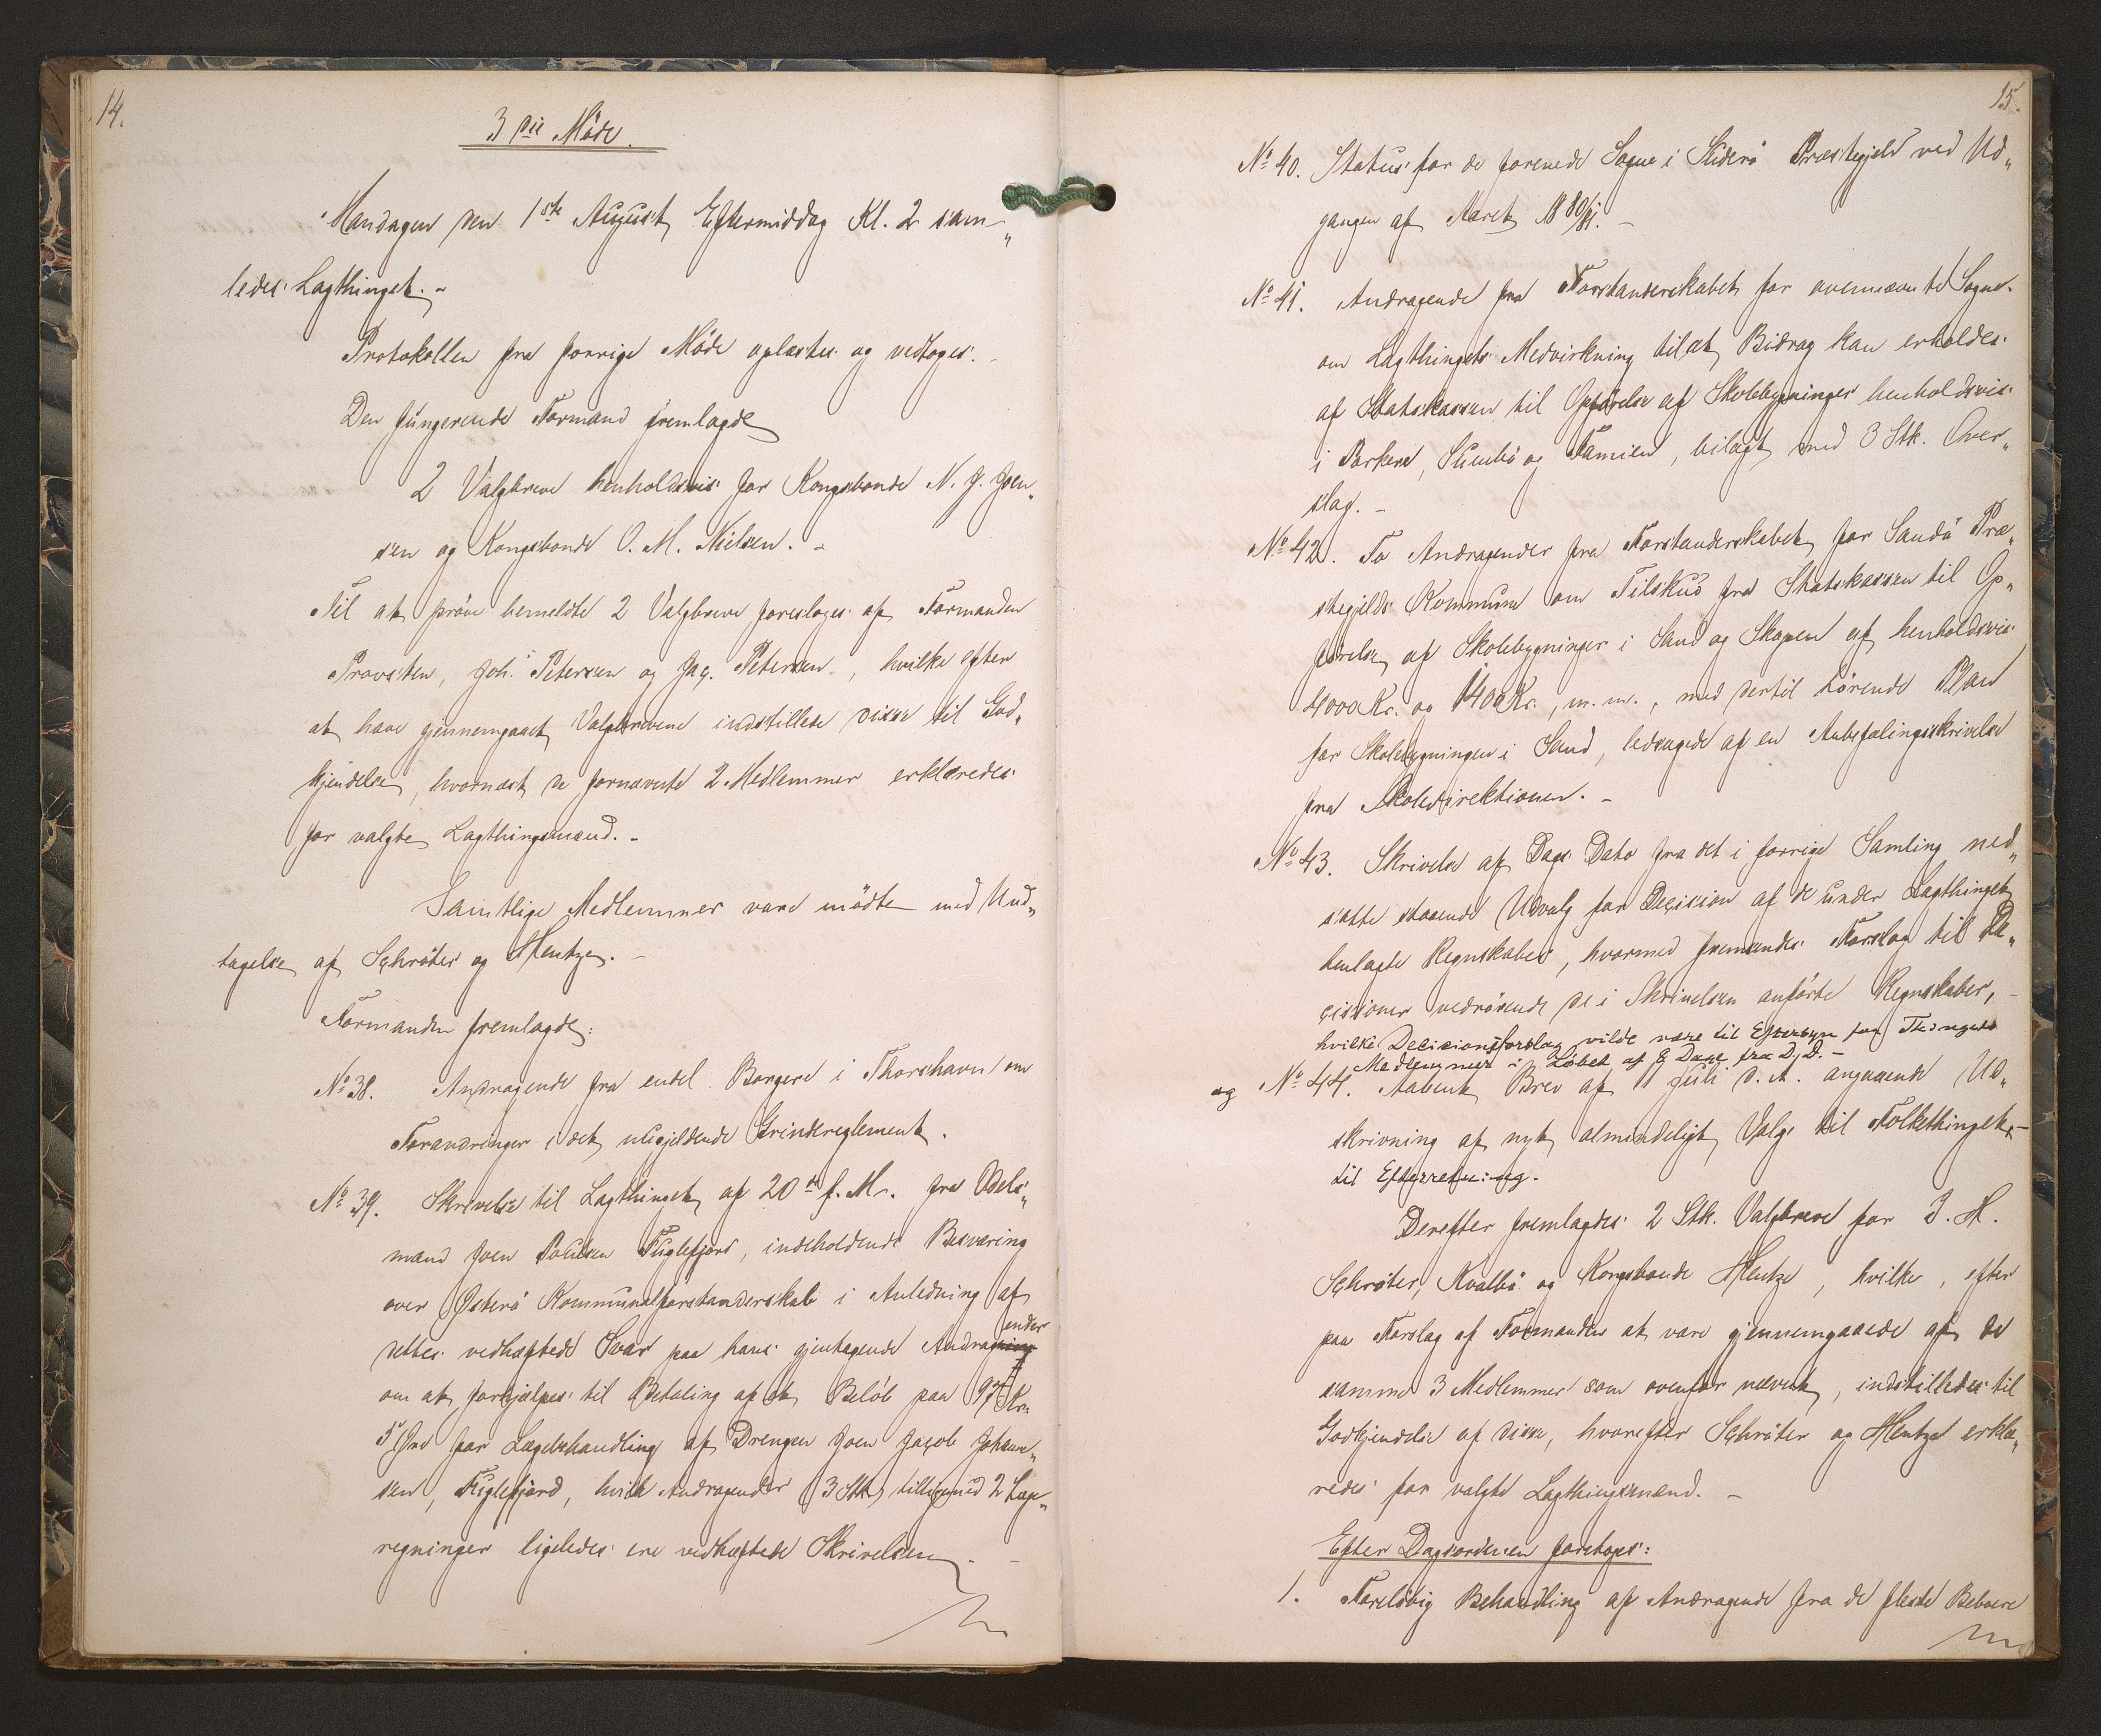 14.
3die Möde.
Mandagen den 1ste August Eftermiddag Kl. 2 sam„
ledes Lagthinget. -
Protokollen fra forrige Möde oplæstes og vedtoges. -
Den fungerende Formand fremlagde
2 Valgbreve henholdsvis for Kongsbonde N. J. Joen„
sen og Kongsbonde O. M. Nielsen. -
Til at pröve bemeldte 2 Valgbreve foresloges af Formanden
Provsten, Joh. Petersen og Jac. Petersen., hvilke efter
at have gjennemgaaet Valgbrevene indstillede disse til God„
kjendelse, hvornæst de fornævnte 2 Medlemmer erklæredes
for valgte Lagthingsmænd. -
Samtlige Medlemmer vare mödte med Und„
tagelse af Schröter og Hentze. -
Formanden fremlagde:
No 38. Andragende fra endel Borgere i Thorshavn om
Forandringer i det nugjeldende Grindereglement.
No 39. Skrivelse til Lagthinget af 20de f. M. fra Odels„
mand Joen Poulsen Fuglefjord, indeholdende Besværing
over Österö Kommunalforstanderskab i Anledning af
dettes vedhæftede Svar paa hans gjentagende Andragender
om at forhjælpes til Betaling af et Belöb paa 97 Kr.
5 Öre for Lægebehandling af Drengen Joen Jacob Johann„
sen, Fuglefjord, hvilke Andragender (3 Stk) tilligemed 2 Læge„
regninger ligeledes ere vedhæftede Skrivelsen. -
15.
No 40. Status for de forenede Sogne i Suderö Præstegjeld ved Ud„
gangen af Aaret 1880/81. -
No 41. Andragende fra Forstanderskabet for ovennævnte Sogne
om Lagthingets Medvirkning til at Bidrag kan erholdes
af Statskassen til Opförelse af Skolebygninger henholdsvis
i Porkere, Sumbö og Famien, bilagt med 3 Stk. Over„
slag. -
No 42. To Andragender fra Forstanderskabet for Sandö Præ„
stegjelds Kommune om Tilskud fra Statskassen til Op„
förelse af Skolebygninger i Sand og Skopen af henholdsvis
4000 Kr. og 1400 Kr., m. m., med dertil hörende Plan
for Skolebygningen i Sand, ledsagede af en Anbefalingsskrivelse
fra Skoledirektionen. -
No 43. Skrivelse af Dags Dato fra det i forrige Samling ned„
satte staaende Udvalg for Decision af de under Lagthinget
henlagte Regnskaber, hvormed fremsendes Forslag til De„
cisioner vedrörende de i Skrivelsen anförte Regnskaber, -
hvilke Decisionsforslag vilde være til Eftersyn for Thingets
Medlemmer i Löbet af 8 Dage fra D. D. -
og No 44. Aabent Brev af 11 Juli d. A. angaaende Ud„
skrivning af nyt almindeligt Valg til Folkethinget, -
til Efterretning.
Derefter fremlagdes 2 Stk. Valgbreve for J. H.
Schröter, Kvalbö og Kongsbonde Hentze, hvilke, efter
paa Forslag af Formanden at være gjennemgaaede af de
samme 3 Medlemmer som ovenfor nævnt, indstilledes til
Godkjendelse af disse, hvorefter Schröter og Hentze erklæ„
redes for valgte Lagthingsmænd. -
Efter Dagsordenen foretoges:
1. Forelöbig Behandling af Andragende fra de fleste Beboere